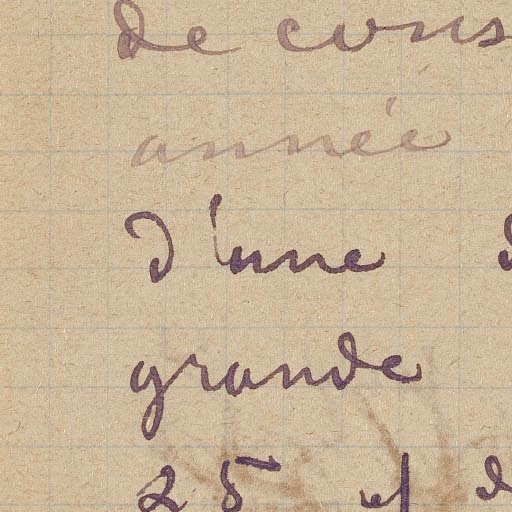 de cons
année
d'une d
grande
25 et d